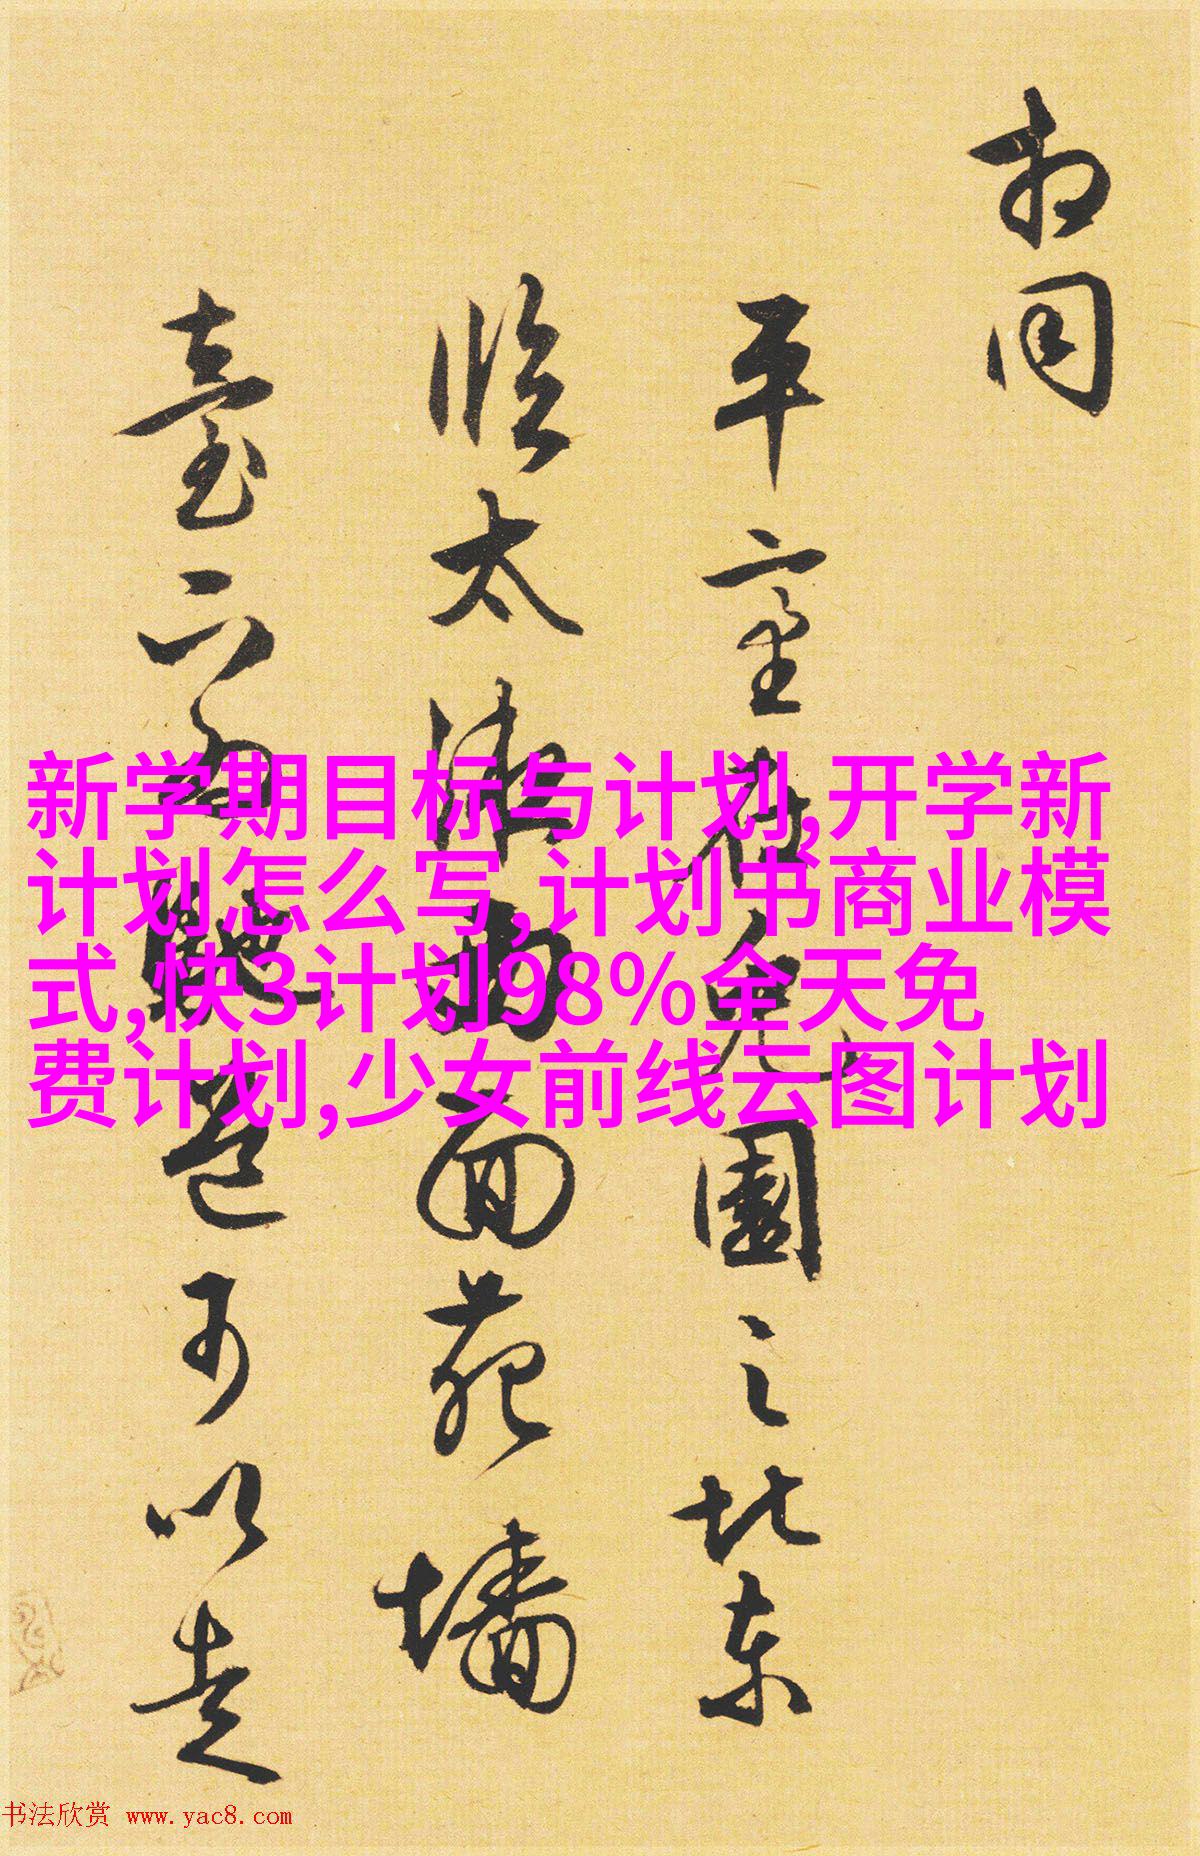 相同
平臺在兔園之北東
臨太液西面苑墻
臺下為馳道可以走
新学期目标与计划,开学新
计划怎么写,计划书商业模
式,快3计划98%全天免
费计划,少女前线云图计划
书法欣赏 www.yac8.com